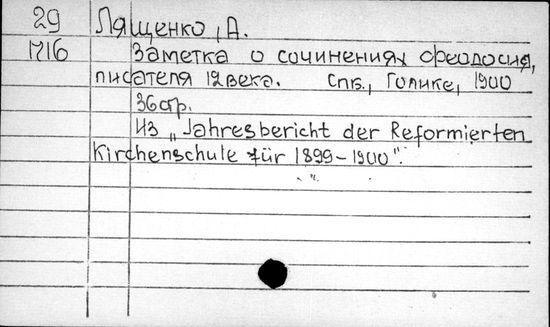 29 Лященко, А.
1716 Заметка о сочинениях Феодосия,
писателя 12 века. Спб., Голике, 1900
36 стр.
Из „Jahresbericht der Reformierten
Kirchenschule für 1899-1900".